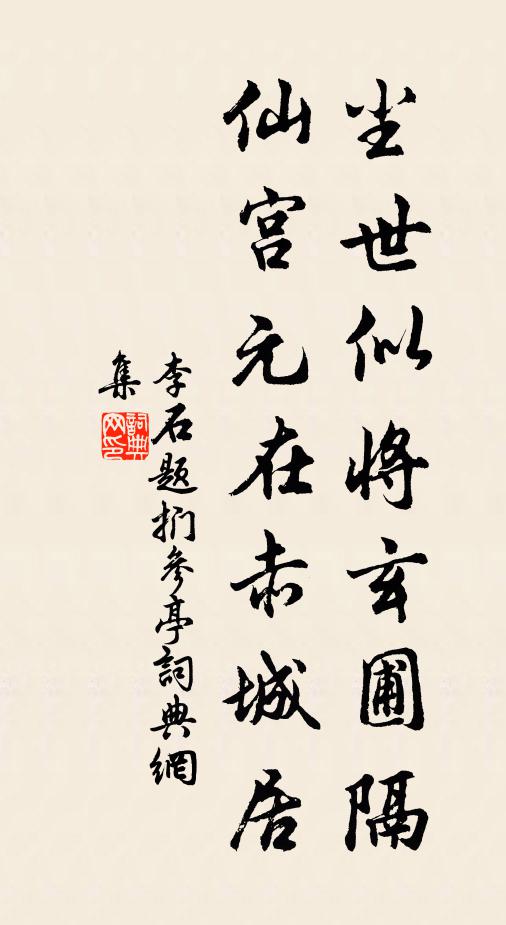 尘世似将玄圃隔
仙宫元在赤城居
李石题扪参亭詞典網
集
詞典
网印